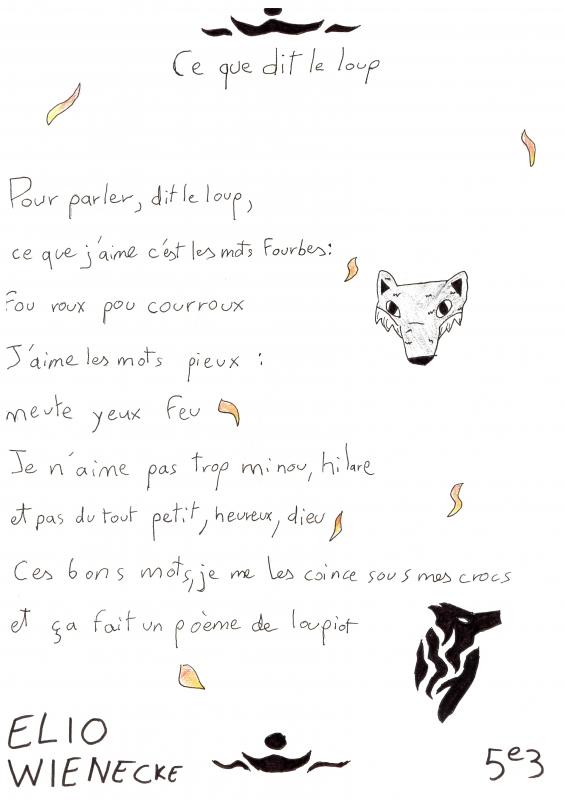 Ce que dit le loup
Pour parler, dit le loup,
ce que j'aime c'est les mots Fourbes:
Fou roux pou courroux
J'aime les mots pieux :
meute yeux Feu
Je n'aime pas trop minou, hilare
et pas du tout petit, heureux, dieu
Ces bons mots, je me les coince sous mes crocs
et ça fait un pòème de loupiot
ELIO
WIENECKE
5e3